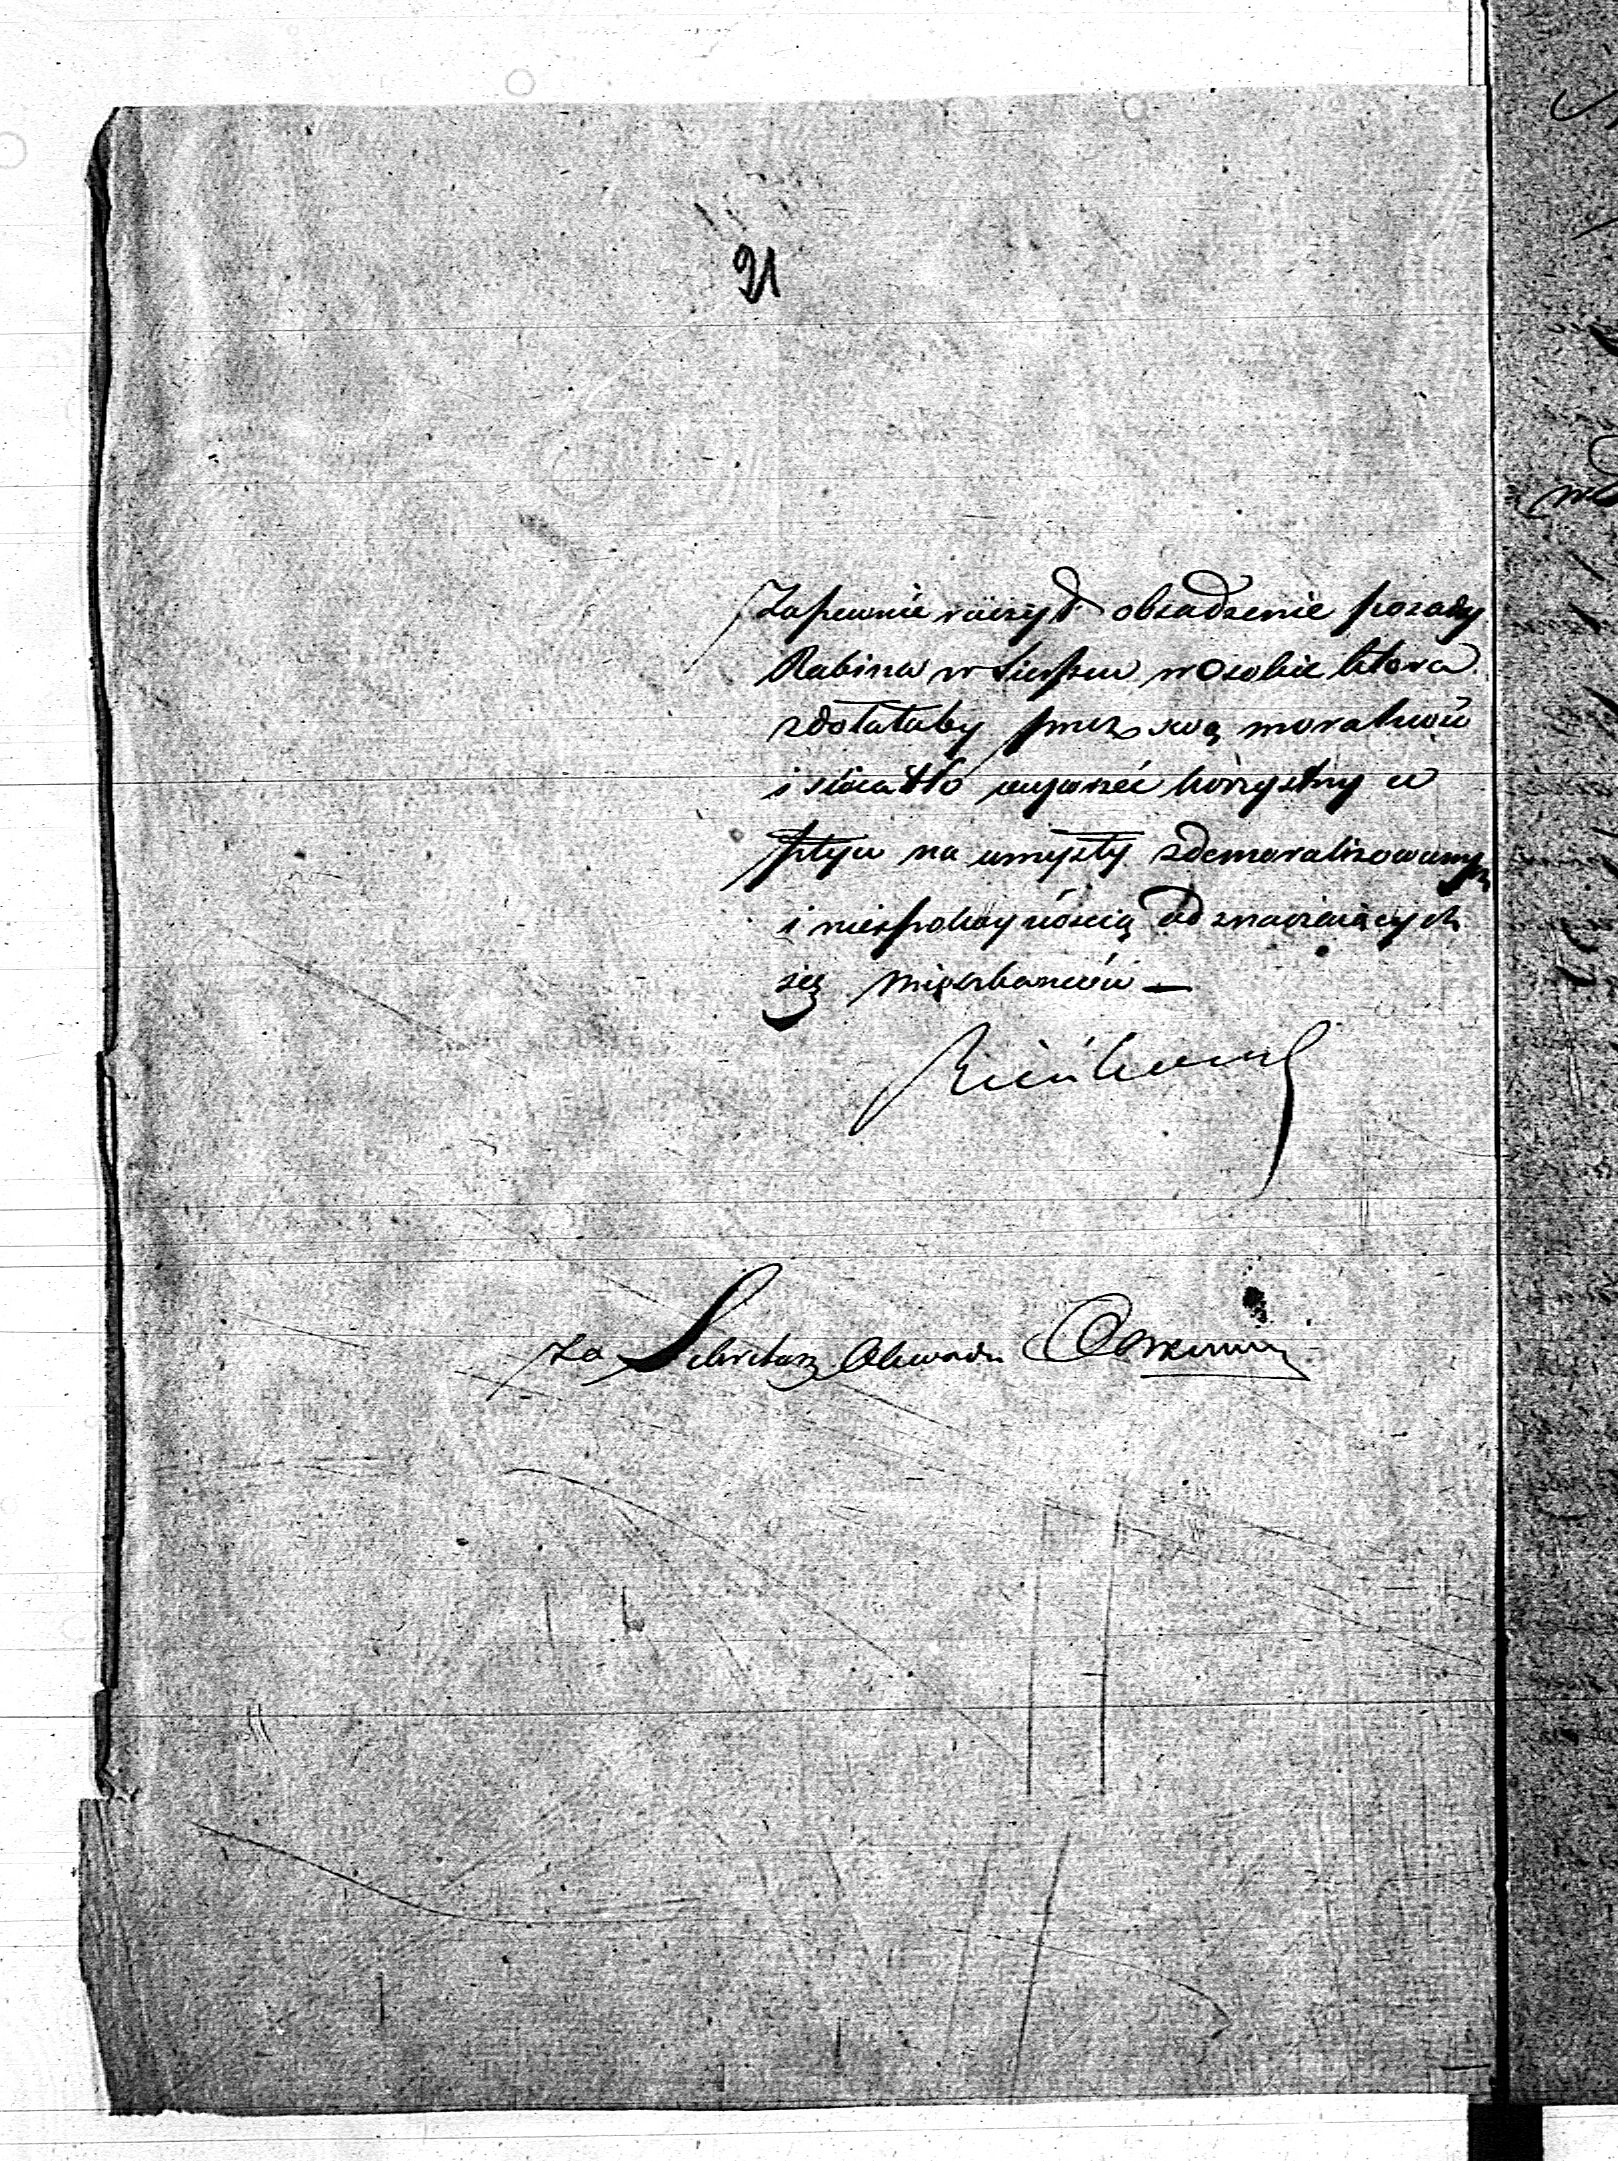 21
Zapewnić raczył obsadzenie posady
Rabina w Sierpcu w osobie która
zdołałaby przez swą moralność
i światło wywrzeć korzystny w
pływ na umysły zdemoralizowanych
i niespokojnością odznaczaiących
się mieszkańców —
Za Sekretarz Obwodu